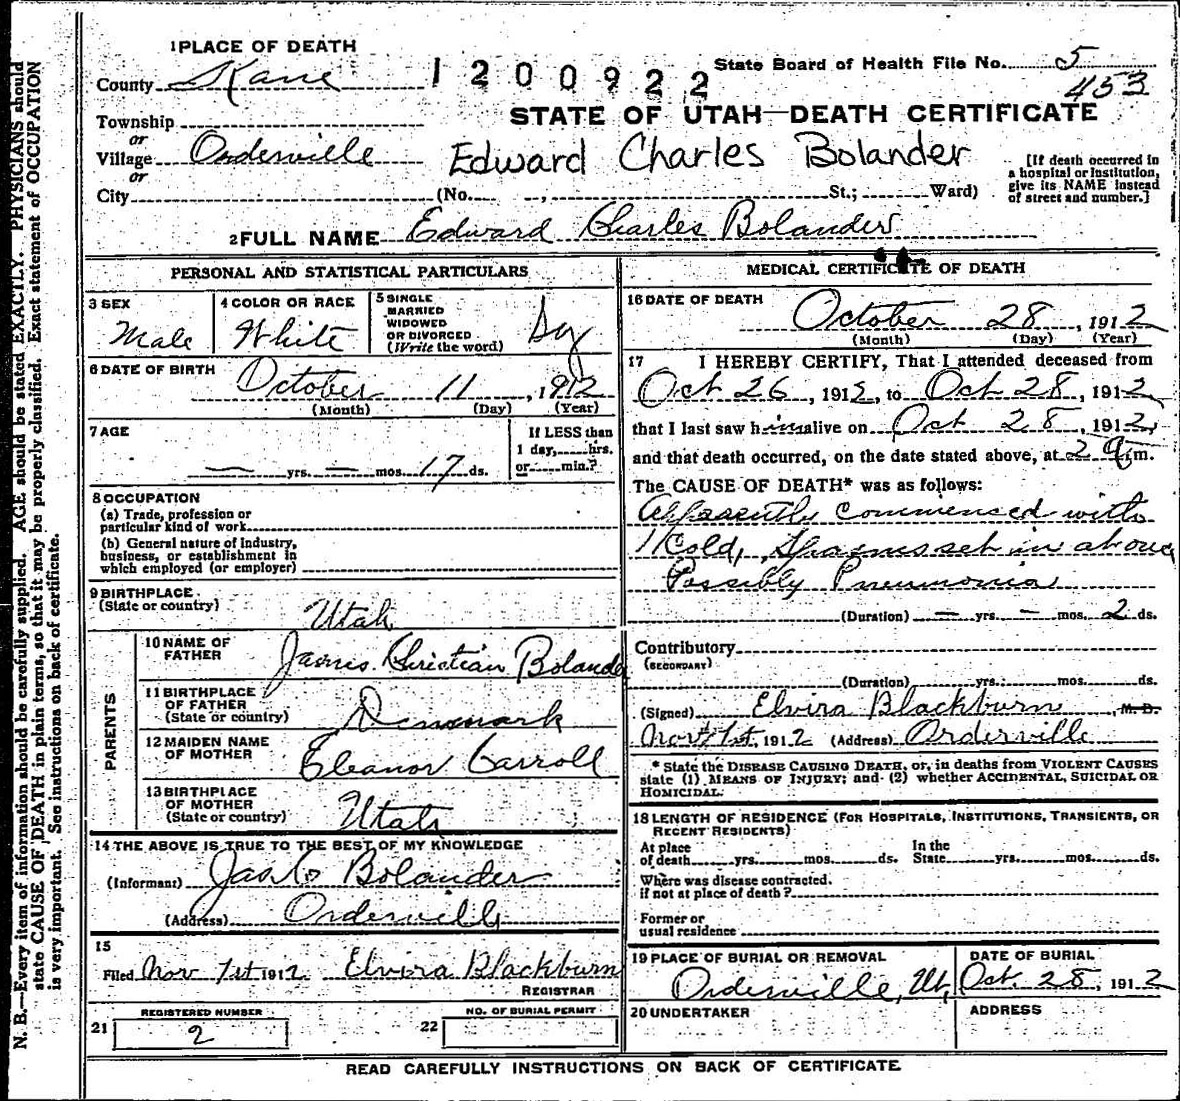 1 PLACE OF DEATH
County Kane
1200922
State Board of Health File No. 5
453
STATE OF UTAH—DEATH CERTIFICATE
Township
or
Village Orderville
or
City
Edward Charles Bolander
(No. , St.; Ward)
[If death occurred in
a hospital or institution,
give its NAME instead
of street and number.]
2 FULL NAME Edward Charles Bolander
PERSONAL AND STATISTICAL PARTICULARS
3 SEX
Male
4 COLOR OR RACE
White
5 SINGLE
MARRIED
WIDOWED
OR DIVORCED
(Write the word)
6 DATE OF BIRTH
October 11, 1912
(Month) (Day) (Year)
7 AGE
— yrs. — mos. 17 ds.
If LESS than
1 day, hrs.
or min.?
8 OCCUPATION
(a) Trade, profession or
particular kind of work
(b) General nature of Industry,
business, or establishment in
which employed (or employer)
9 BIRTHPLACE
(State or country)
Utah
PARENTS
10 NAME OF
FATHER
Christian Bolander
11 BIRTHPLACE
OF FATHER
(State or country)
Denmark
12 MAIDEN NAME
OF MOTHER
Eleanor Carroll
13 BIRTHPLACE
OF MOTHER
(State or country)
Utah
14 THE ABOVE IS TRUE TO THE BEST OF MY KNOWLEDGE
(Informant) Bolander
(Address) Orderville
15
Filed Nov 1st 1912 Elvira Blackburn
REGISTRAR
21
REGISTERED NUMBER
2
22
NO. OF BURIAL PERMIT
MEDICAL CERTIFICATE OF DEATH
16 DATE OF DEATH
October 28, 1912
(Month) (Day) (Year)
17 I HEREBY CERTIFY, That I attended deceased from
Oct 26, 1912, to Oct 28, 1912
that I last saw him alive on Oct 28, 1912,
and that death occurred, on the date stated above, at 2 a.m.
The CAUSE OF DEATH* was as follows:
Apparently commenced with
Cold, set in
Possibly Pneumonia
(Duration) — yrs. — mos. 2 ds.
Contributory
(SECONDARY)
(Duration) yrs. mos. ds.
(Signed) Elvira Blackburn, M. D.
Nov. 1st, 1912 (Address) Orderville
* State the DISEASE CAUSING DEATH, or, in deaths from VIOLENT CAUSES
state (1) MEANS OF INJURY; and (2) whether ACCIDENTAL, SUICIDAL OR
HOMICIDAL.
18 LENGTH OF RESIDENCE (FOR HOSPITALS, INSTITUTIONS, TRANSIENTS, OR
RECENT RESIDENTS)
At place
of death yrs. mos. ds.
In the
State yrs. mos. ds.
Where was disease contracted,
if not at place of death?
Former or
usual residence
19 PLACE OF BURIAL OR REMOVAL
Orderville, Ut,
DATE OF BURIAL
Oct. 28, 1912
20 UNDERTAKER
ADDRESS
READ CAREFULLY INSTRUCTIONS ON BACK OF CERTIFICATE
N. B.—Every item of information should be carefully supplied. AGE should be stated EXACTLY. PHYSICIANS should
state CAUSE OF DEATH in plain terms, so that it may be properly classified. Exact statement of OCCUPATION
is very important. See instructions on back of certificate.